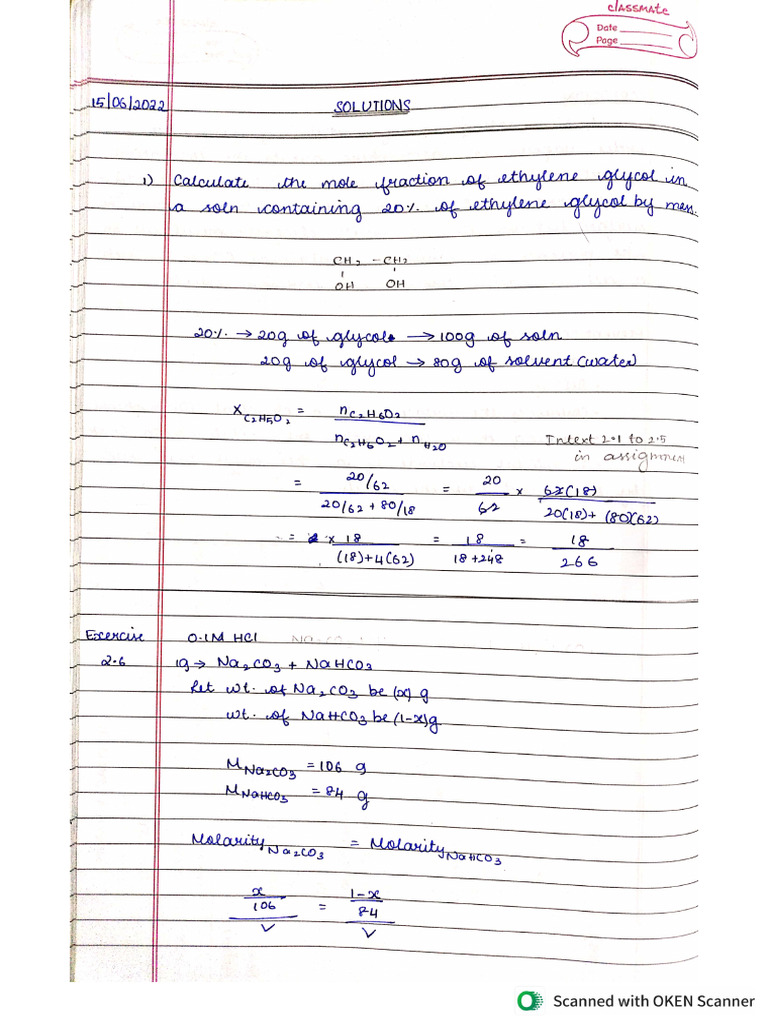 classmate
Date
Page
15/06/2022 SOLUTIONS
1) Calculate the mole fraction of ethylene glycol in
a soln containing 20% of ethylene glycol by mass.
CH2 - CH2
OH OH
20% → 20g of glycol → 100g of soln
20g of glycol → 80g of solvent (water)
x C2H5O2 = nC2H6O2 / nC2H6O2 + nH2O
Intext 2.1 to 2.5
in assignment
= 20/62 / 20/62 + 80/18 = 20/62 × 62(18) / 20(18) + (80)(62)
= × 18 / (18)+4(62) = 18 / 18+248 = 18 / 266
Exercise 0.1M HCl
2.6 1g → Na2CO3 + NaHCO3
Let wt. of Na2CO3 be (x) g
wt. of NaHCO3 be (1-x)g
M Na2CO3 = 106 g
M NaHCO3 = 84 g
Molarity Na2CO3 = Molarity NaHCO3
x/106 / V = 1-x/84 / V
Scanned with OKEN Scanner